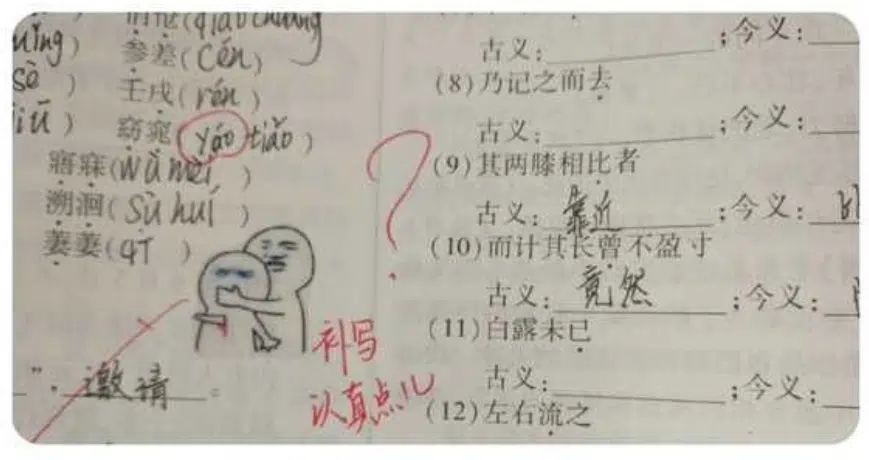 (qiāo chuāng)
参差(cēn)
壬戌(rén)
窈窕(yáo tiǎo)
寤寐(wǔ mèi)
溯洄(sù huí)
萋萋(qī)
邀请。
补写
认真点儿
?
古义:;今义:
(8)乃记之而去
古义:;今义:
(9)其两膝相比者
古义:靠近;今义:
(10)而计其长曾不盈寸
古义:竟然;今义:
(11)白露未已
古义:;今义:
(12)左右流之